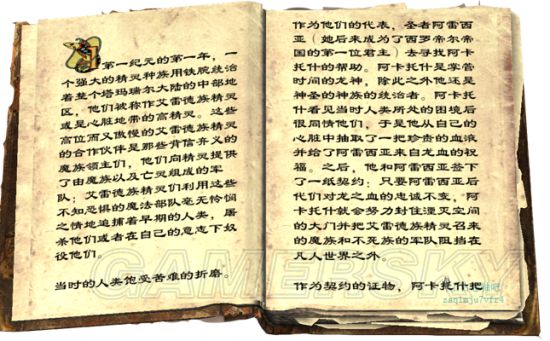 第一纪元的第一年，一
个强大的精灵种族用铁腕统治
着整个塔玛瑞尔大陆的中部地
区，他们被称作艾雷德族精灵
或是心脏地带的高精灵。这些
高位而又傲慢的艾雷德族精灵
的合作伙伴是那些背信弃义的
魔族领主们，他们向精灵提供
了由魔族以及亡灵组成的军
队；艾雷德族精灵们利用这些
不知恐惧的魔法部队毫无怜悯
之情地追捕着早期的人类，屠
杀他们或者在自己的意志下奴
役他们。
当时的人类饱受苦难的折磨。
作为他们的代表，圣者阿雷西
亚（她后来成为了西罗帝尔帝
国的第一位君主）去寻找阿卡
托什的帮助。阿卡托什是掌管
时间的龙神，除此之外他还是
神圣的神族的统治者。阿卡托
什看见当时人类所处的困境后
很同情他们，于是他从自己的
心脏中抽取了一把珍贵的血液
并给了阿雷西亚来自龙血的祝
福。之后，他和阿雷西亚签下
了一纸契约：只要阿雷西亚后
代们对龙之血的忠诚不变，阿
卡托什就会努力封住湮灭空间
的大门并把艾雷德族精灵召来
的魔族和不死族的军队阻挡在
凡人世界之外。
作为契约的证物，阿卡托什把
GAMERSKY
zaq1mju7vfr4